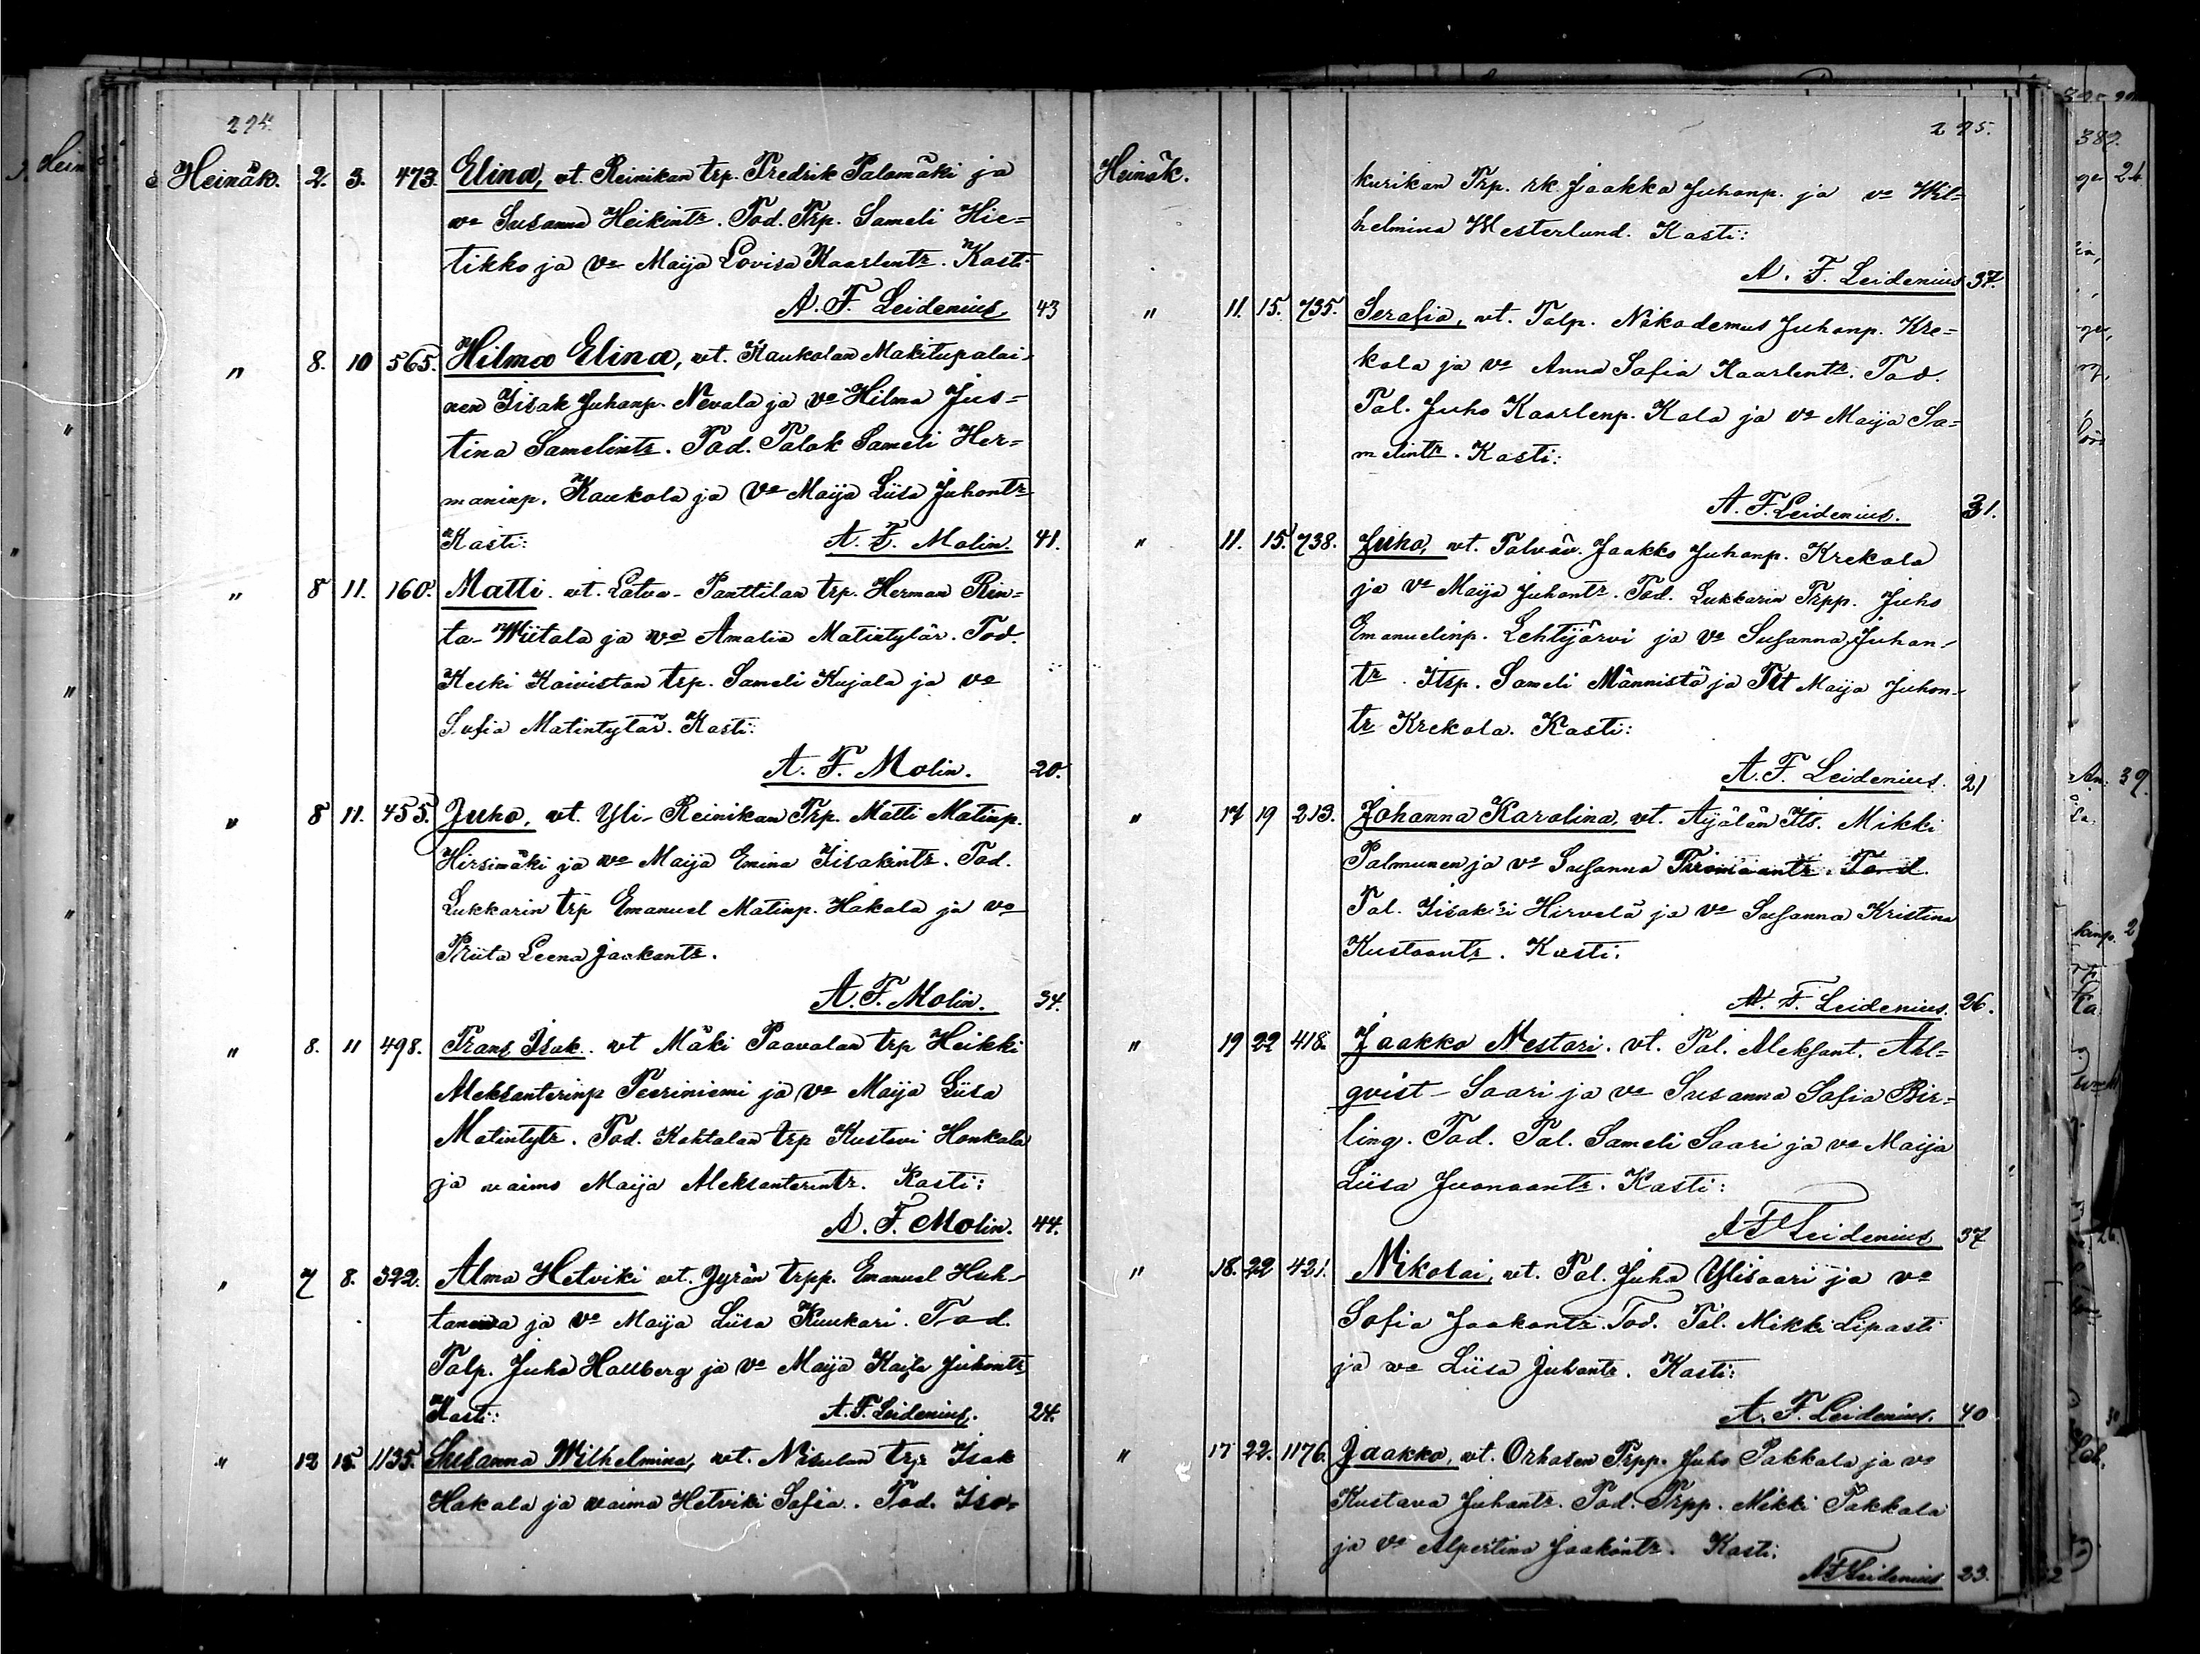 294.
Heinäk. 2. 3. 473. Elina, vt. Reinikan trp. Fredrik Palomäki ja
vo Susanna Heikintr. Tod. Trp. Sameli Hie=
tikko ja Vo Maija Lovisa Kaarlentr. Kasti
A. F. Leidenius 43
" 8. 10 565. Hilma Elina, vt. Kaukolan Makitupalai-
nen Iisak Juhanp. Nevala ja Vo Hilma Jus=
tina Samelintr. Tod. Palok Sameli Her=
maninp. Kaukola ja Vo Maija Liisa Juhontr
Kasti: A. F. Molin. 41.
" 8 11. 160. Matti. vt. Latva-Panttilan trp. Herman Rin=
ta-Wiitala ja vo Amalia Matintytär. Tod.
Keski Koiviston trp. Sameli Kujala ja vo
Sofia Matintytär. Kasti:
A. F. Molin. 20.
" 8 11. 455. Juho, vt. Yli-Reinikan Trp. Matti Matinp.
Hirsimäki ja vo Maija Emina Iisakintr. Tod.
Lukkarin trp Emanuel Matinp. Hakola ja vo
Priita Leena Jaakontr.
A. F. Molin. 34.
" 8. 11 498. Frans Isak. vt Mäki Paavolan trp Heikki
Aleksanterinp Peeriniemi ja vo Maija Liisa
Matintytr. Tod. Kahtalan trp Kustavi Honkala
ja waimo Maija Aleksanterintr. Kasti:
A. F. Molin. 44.
" 7 8. 322. Alma Hetviki vt. Jyrän trpp. Emanuel Huh-
ja vo Maija Liisa Kuukari. Tod.
Palp. Juha Hallberg ja vo Maija Kajsa Juhontr
Kasti: A. F. Leidenius. 24.
" 12 15. 1135. Susanna Wilhelmina, vt. Nisulan trp Isak
Hakala ja waimo Hetviki Sofia. Tod. Iso-
295.
Heinäk. kurikan Trp. rk. Jaakko Juhanp. ja vo Wil=
helmina Westerlund. Kasti:
A. F. Leidenius 37.
" 11. 15. 735. Serafia, vt. Palp. Nikodemus Juhanp. Kre=
kola ja vo Anna Sofia Kaarlentr. Tod.
Pal. Juho Kaarlenp. Kola ja vo Maija Sa=
melintr. Kasti:
A. F. Leidenius. 31.
" 11. 15. 738. Juho, vt. Palväv. Jaakko Juhanp. Krekola
ja vo Maija Juhontr. Tod. Lukkarin Trpp. Juho
Emanuelinp. Lehtijärvi ja vo Susanna Juhon-
tr. Itsp. Sameli Männistö ja Tit Maija Juhon-
tr Krekola. Kasti:
A. F. Leidenius. 21
" 17 19 213. Johanna Karolina, vt. Äijälän Its. Mikki
Palmunen ja vo Susanna Tod
Pal. Iisakki Hirvelä ja vo Susanna Kristina
Kustaantr. Kasti:
A. F. Leidenius. 26.
" 19 22 418. Jaakko Nestori. vt. Pal. Aleksant. Ahl=
qvist-Saari ja vo Susanna Sofia Bir=
ling. Tod. Pal. Sameli Saari ja vo Maija
Liisa Juonaantr. Kasti:
A F Leidenius 37
" 18. 22 421. Nikolai, vt. Pal. Juha Ylisaari ja vo
Sofia Jaakontr. Tod. Pal. Mikki Lipasti
ja vo Liisa Juhontr. Kasti:
A. F. Leidenius. 40
" 17 22. 1176. Jaakko, vt. Orhasen Trpp. Juho Pakkala ja vo
Kustava Juhontr. Tod. Trpp. Mikki Pakkala
ja vo Alpertina Jaakontr. Kasti:
A F Leidenius 23.